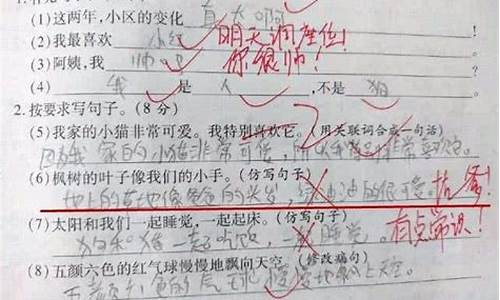 (1)这两年,小区的变化 真大啊
(2)我最喜欢 小红 明天调座位!
(3)阿姨,我 帅吧 你很帅!
(4) 我 是 人 ,不是 狗
2.按要求写句子。(8 分)
(5)我家的小猫非常可爱。我特别喜欢它。(用关联词合成一句话)
因为我家的小猫非常可爱,所以我 非常喜欢它。
(6)枫树的叶子像我们的小手。(仿写句子)
地上的草地像爸爸的头发,绿油油的很可爱。 找爹!
(7)太阳和我们一起睡觉,一起起床。(仿写句子)
狗和猪一起吃饭,一起睡觉。 有点常识!
(8)五颜六色的红气球慢慢地飘向天空。(修改病句)
五颜六色的气球慢慢地飘上天空。